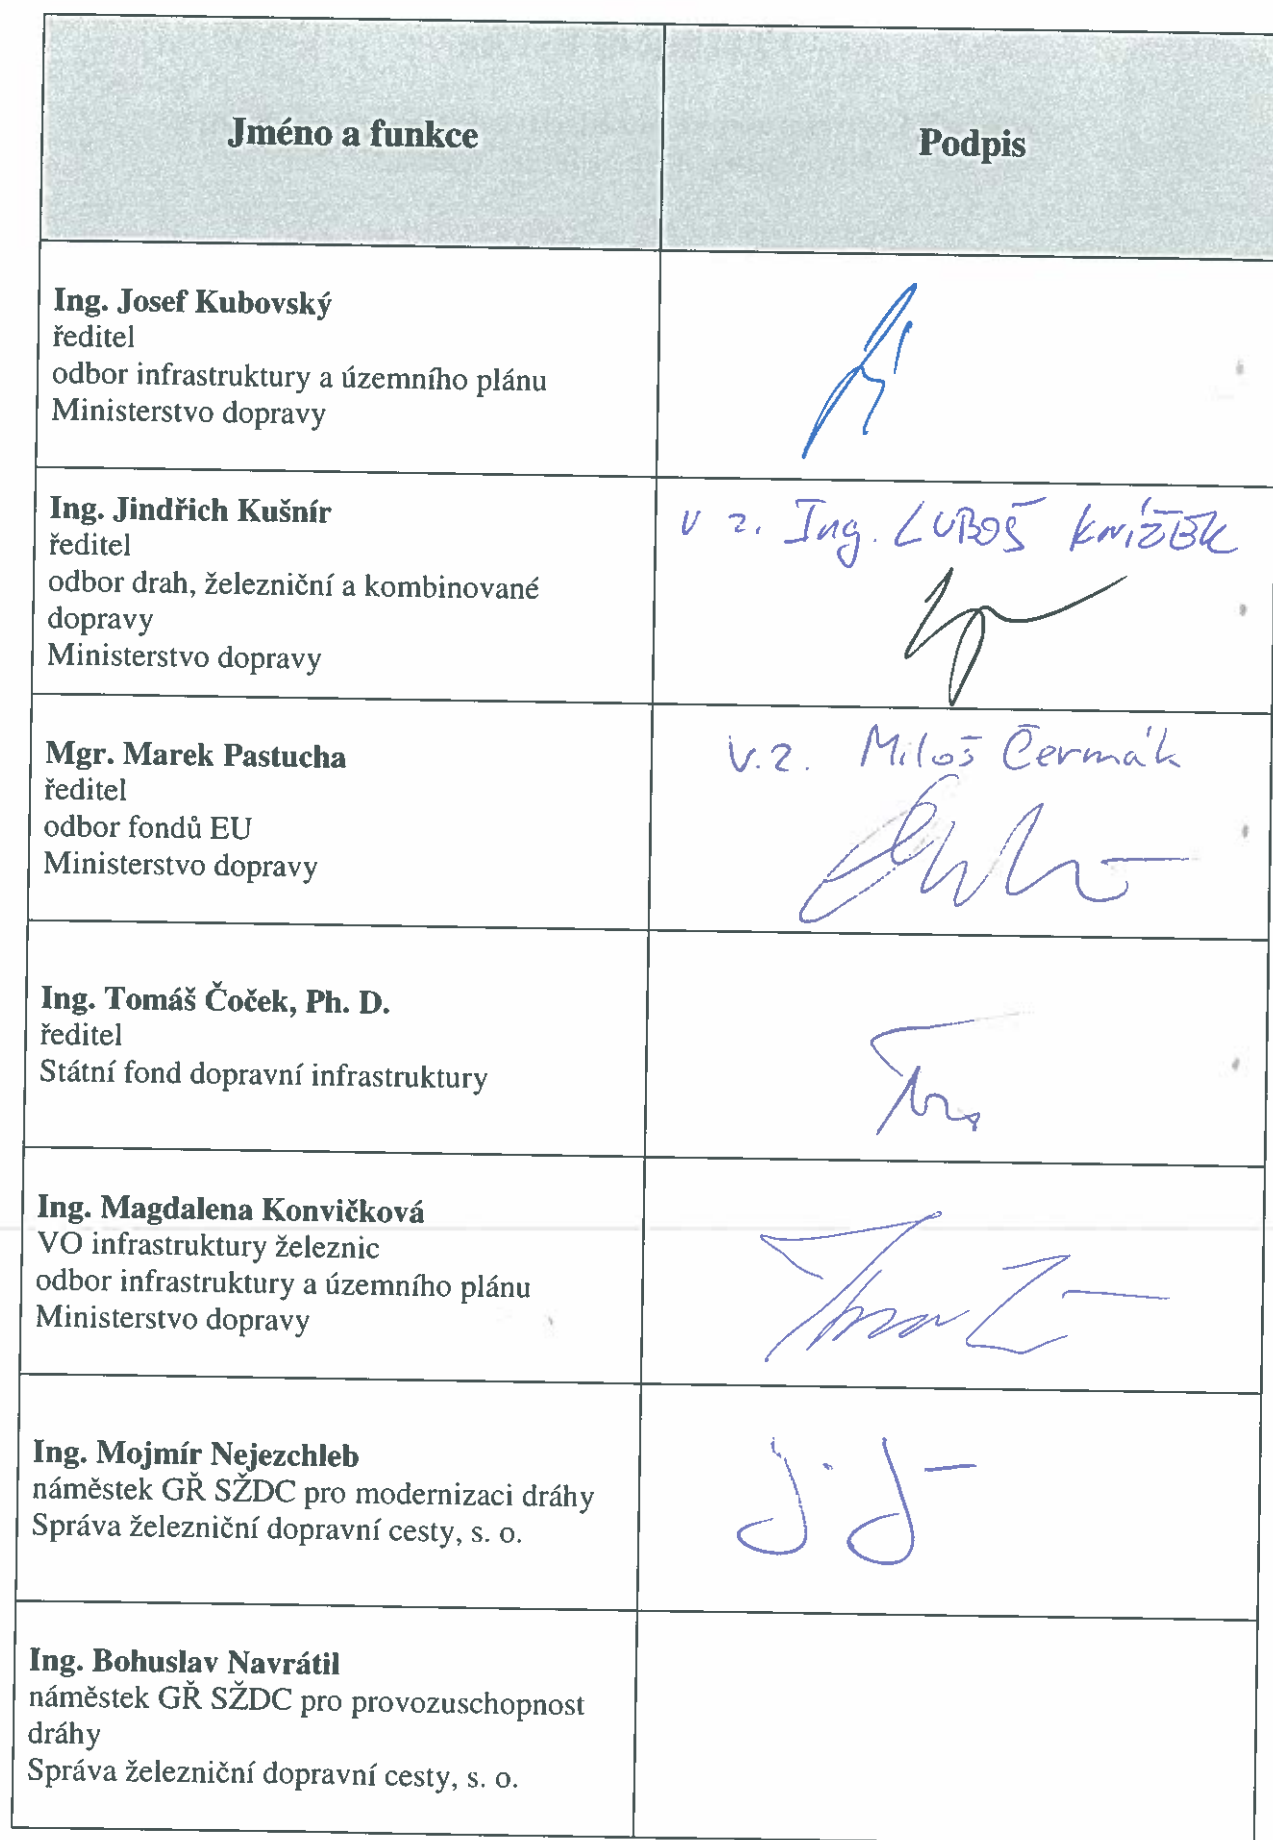 Jméno a funkce
Podpis
Ing. Josef Kubovský
ředitel
odbor infrastruktury a územního plánu
Ministerstvo dopravy
Ing. Jindřich Kušnír
ředitel
odbor drah, železniční a kombinované
dopravy
Ministerstvo dopravy
v z. Ing. LUBOŠ KNÍŽEK
Mgr. Marek Pastucha
ředitel
odbor fondů EU
Ministerstvo dopravy
v.z. Miloš Čermák
Ing. Tomáš Čoček, Ph. D.
ředitel
Státní fond dopravní infrastruktury
Ing. Magdalena Konvičková
VO infrastruktury železnic
odbor infrastruktury a územního plánu
Ministerstvo dopravy
Ing. Mojmír Nejezchleb
náměstek GŘ SŽDC pro modernizaci dráhy
Správa železniční dopravní cesty, s. o.
Ing. Bohuslav Navrátil
náměstek GŘ SŽDC pro provozuschopnost
dráhy
Správa železniční dopravní cesty, s. o.